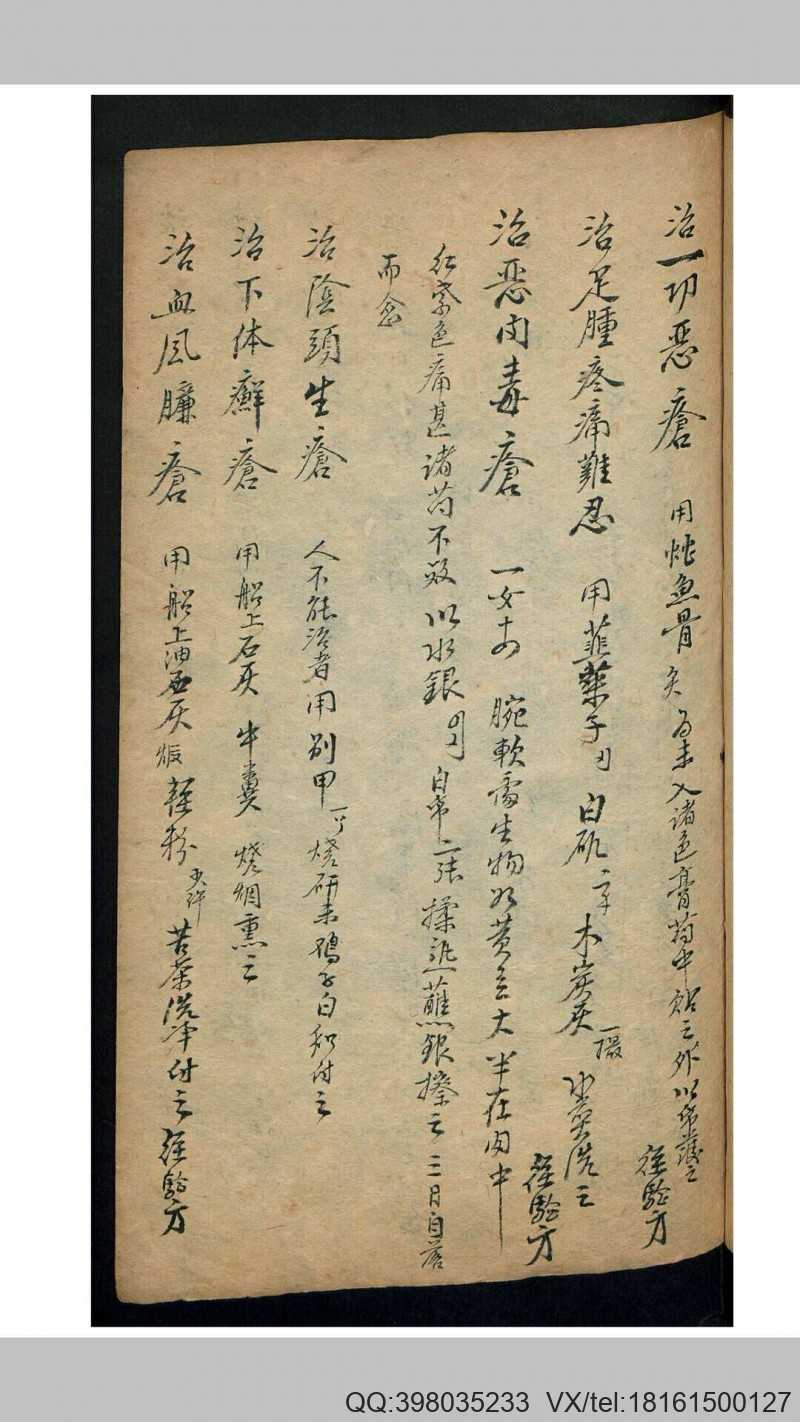 治一切恶瘡 用蛇魚骨炙為末入諸色膏药中貼之外以帋護之 經驗方
治足腫疼痛難忍 用韮葉子 白矾 木炭灰一撮 洗之 經驗方
治恶肉毒瘡 一女 腕軟處生物如黄豆大半在肉中
红紫色痛甚诸药不效 以水銀 白帋二張揉熟蘸銀擦之三日自落
而愈
治陰頭生瘡 人不能治者用別甲一个燒研末鸡子白和付之
治下体癬瘡 用船上石灰 牛糞 燒烟熏之
治血風臁瘡 用船上油石灰煅 輕粉少許 苦茶洗净付之 經驗方
QQ:398035233 VX/tel:18161500127